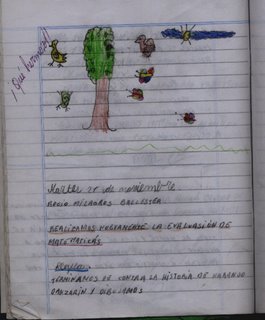 ¡Qué hermoso!!
Martes 25 de noviembre
ROCIO MILAGROS BALLESTER
REALIZAMOS NUEVAMENTE LA EVALUASIÓN DE
MATEMÁTICAS
TERMINAMOS DE CONTRA LA HISTORIA DE NARANJO
Y DIBUJAMOS